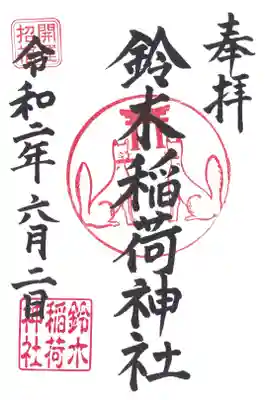 奉拝
鈴木稲荷神社
令和二年六月二日
開運招福
鈴木
稲荷
神社